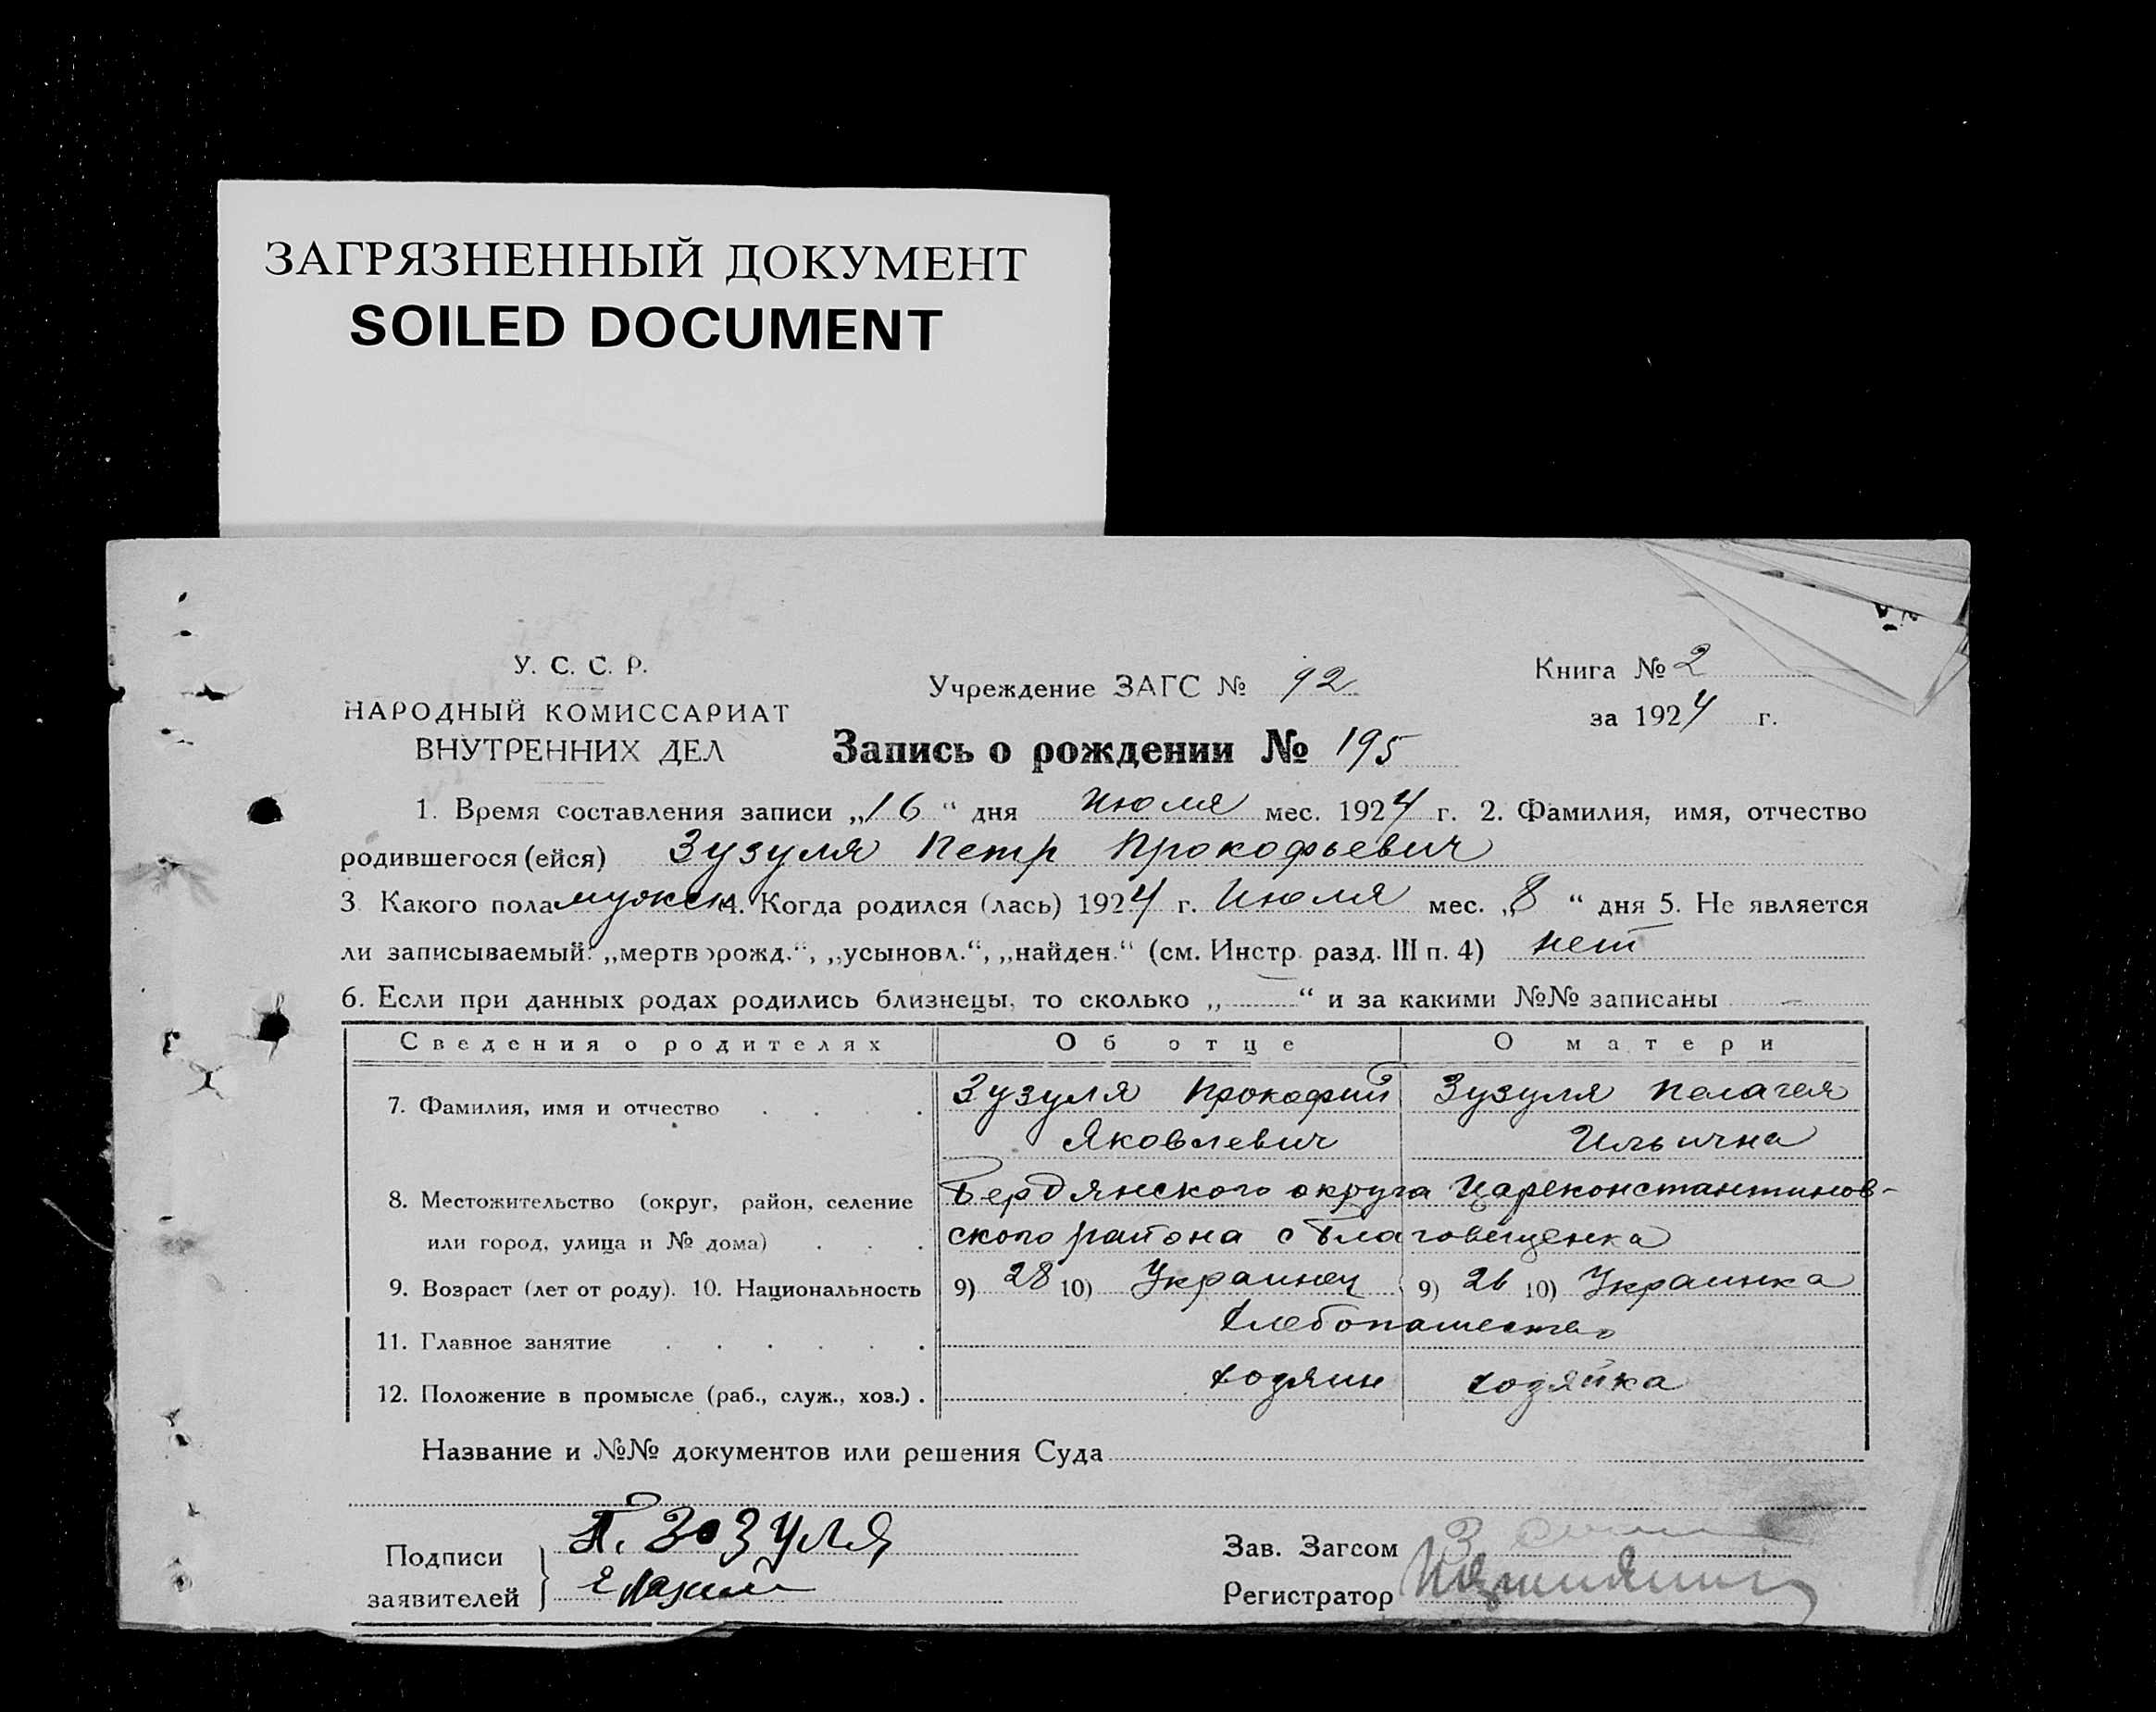 ЗАГРЯЗНЕННЫЙ ДОКУМЕНТ
SOILED DOCUMENT
У. С. С. Р.
НАРОДНЫЙ КОМИССАРИАТ
ВНУТРЕННИХ ДЕЛ
Учреждение ЗАГС № 92
Книга № 2
за 1924 г.
Запись о рождении № 195
1. Время составления записи „16“ дня Июля мес. 1924 г. 2. Фамилия, имя, отчество
родившегося (ейся) Зузуля Петр Прокофьевич
3. Какого пола мужск 4. Когда родился (лась) 1924 г. Июля мес. „8“ дня 5. Не является
ли записываемый: „мертворожд.“, „усыновл.“, „найден.“ (см. Инстр. разд. III п. 4) нет
6. Если при данных родах родились близнецы, то сколько „—“ и за какими №№ записаны —
Сведения о родителях Об отце О матери
7. Фамилия, имя и отчество . . . . Зузуля Прокофий Зузуля Пелагея
Яковлевич Ильична
8. Местожительство (округ, район, селение Бердянского округа Цареконстантинов-
или город, улица и № дома) . . . ского района с Благовещенка
9. Возраст (лет от роду). 10. Национальность 9) 28 10) Украинец 9) 26 10) Украинка
11. Главное занятие . . . . . . Хлебопашество
12. Положение в промысле (раб., служ., хоз.) . хозяин хозяйка
Название и №№ документов или решения Суда
Подписи
заявителей
П. Зозуля
Зав. Загсом
Регистратор